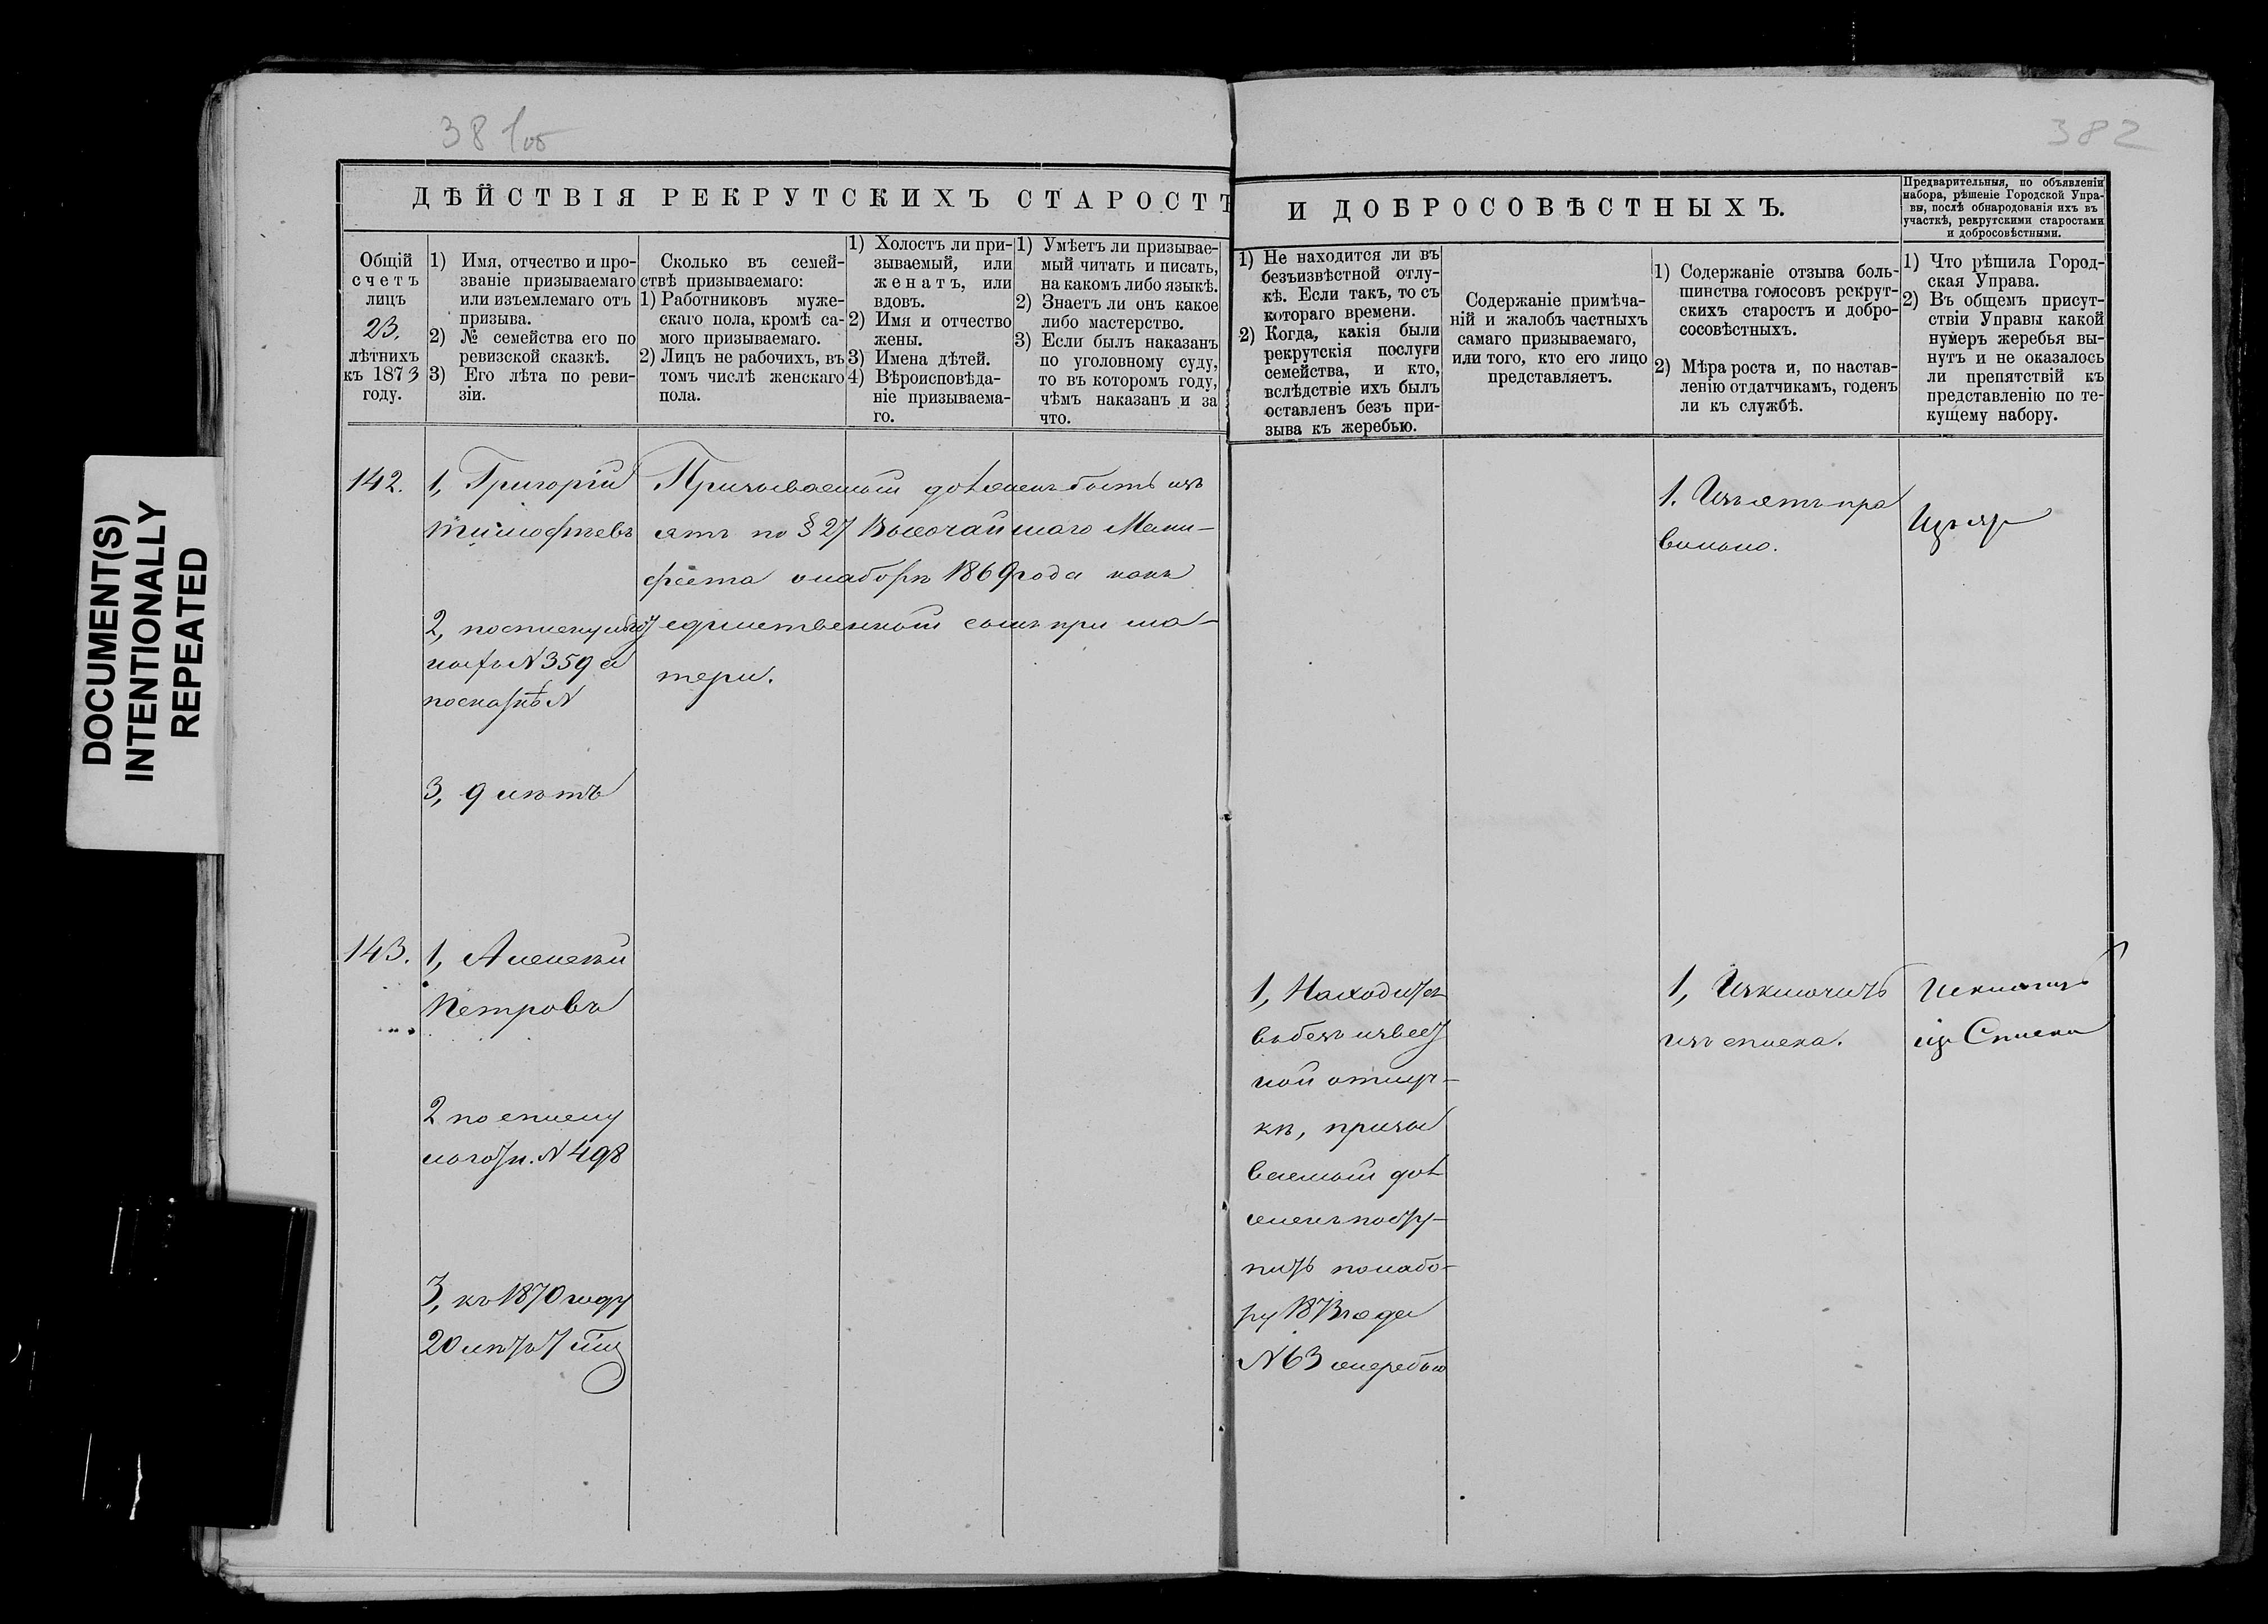 381об
382
ДѢЙСТВІЯ РЕКРУТСКИХЪ СТАРОСТЪ
И ДОБРОСОВѢСТНЫХЪ.
Предварительныя, по объявленіи
набора, рѣшеніе Городской Упра-
вы, послѣ обнародованія ихъ въ
участкѣ, рекрутскими старостами
и добросовѣстными.
Общій
счетъ
лицъ
23.
лѣтнихъ
къ 1873
году.
1) Имя, отчество и про-
званіе призываемаго
или изъемлемаго отъ
призыва.
2) № семейства его по
ревизской сказкѣ.
3) Его лѣта по реви-
зіи.
Сколько въ семей-
ствѣ призываемаго:
1) Работниковъ муже-
скаго пола, кромѣ са-
мого призываемаго.
2) Лицъ не рабочихъ, въ
томъ числѣ женскаго
пола.
1) Холостъ ли при-
зываемый, или
женатъ, или
вдовъ.
2) Имя и отчество
жены.
3) Имена дѣтей.
4) Вѣроисповѣда-
ніе призываема-
го.
1) Умѣетъ ли призывае-
мый читать и писать,
на какомъ либо языкѣ.
2) Знаетъ ли онъ какое
либо мастерство.
3) Если былъ наказанъ
по уголовному суду,
то въ которомъ году,
чѣмъ наказанъ и за
что.
1) Не находится ли въ
безъизвѣстной отлу-
кѣ. Если такъ, то съ
котораго времени.
2) Когда, какія были
рекрутскія послуги
семейства, и кто,
вслѣдствіе ихъ былъ
оставленъ безъ при-
зыва къ жеребью.
Содержаніе примѣча-
ній и жалобъ частныхъ
самаго призываемаго,
или того, кто его лицо
представляетъ.
1) Содержаніе отзыва боль-
шинства голосовъ рекрут-
скихъ старостъ и добро-
сосовѣстныхъ.
2) Мѣра роста и, по настав-
ленію отдатчикамъ, годенъ
ли къ службѣ.
1) Что рѣшила Город-
ская Управа.
2) Въ общемъ присут-
ствіи Управы какой
нумеръ жеребья вы-
нутъ и не оказалось
ли препятствій къ
представленію по те-
кущему набору.
142.
1, Григорій
Тимофѣевъ
2, по списку
N 359 а
по сказкѣ N
3, 9 лѣтъ
Призываемый долженъ быть изъ
ятъ по § 27 Высочайшаго Мани-
феста о наборѣ 1869 года какъ
единственный сынъ при ма-
тери.
1. Изъятъ пра
вильно.
143.
1, Алексѣй
Петровъ
2 по списку
N 498
3, къ 1870 году
20 лѣтъ 7
1, Находится
въ безъизвест
ной отлуч-
кѣ, призы
ваемый дол
женъ
по набо-
ру 1873 года
N 63 жеребью
1, Изключить
изъ списка.
Исключить
изъ Списка
DOCUMENT(S)
INTENTIONALLY
REPEATED